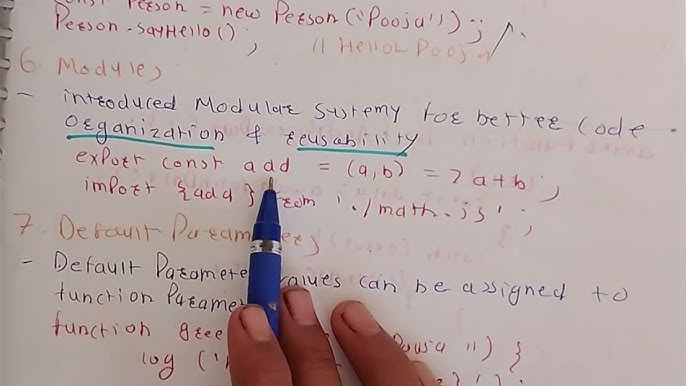 const Person = new Person('Pooja'');
Person.sayHello(); // Hellow Pooja
6. Modules
- introduced Modular Systemy for better Code
organization & reusability
export const add = (a,b) => a+b ;
import {add} from './math.js' ;
7. Default Parameters
- Default Parameter values can be assigned to
function Parame
function gree Pooja '') {
log ('